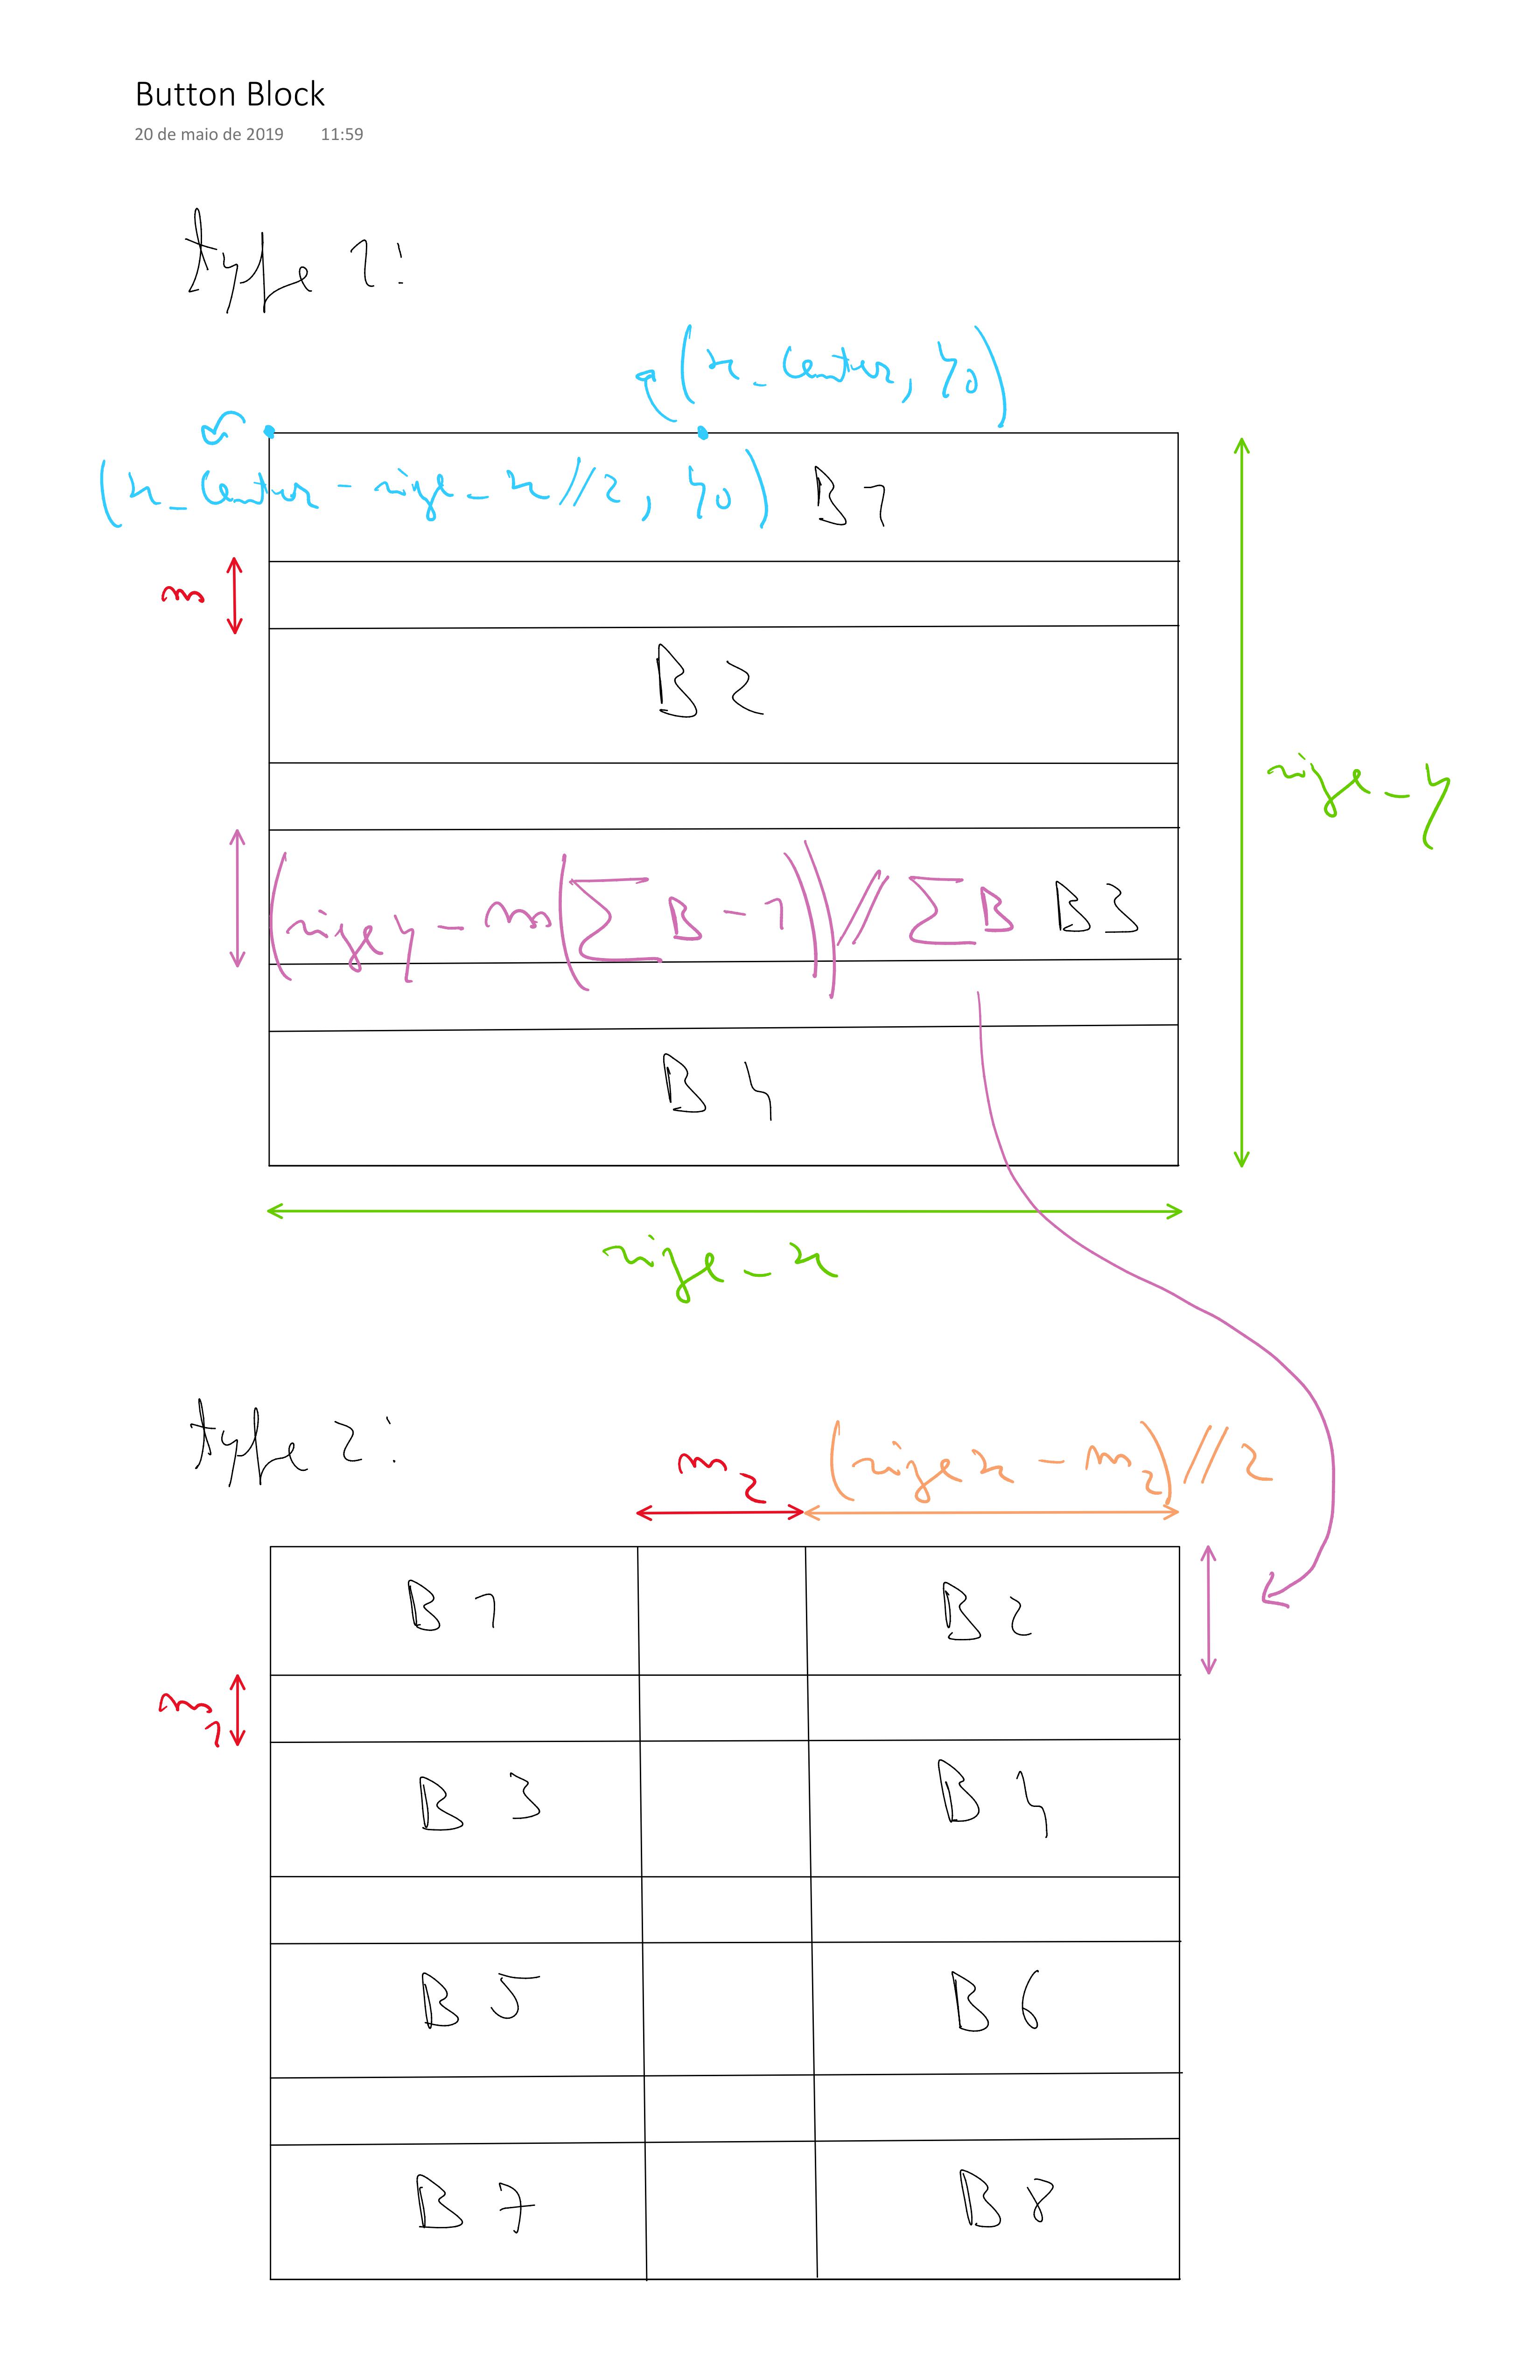 Button Block
20 de maio de 2019 11:59
type 1:
(x_center, y0)
(x_center - size_x//2, y0) B1
m
B2
size_y
(size y - m(∑B-1))//∑B B3
B4
size_x
type 2:
m2 (size x - m2)//2
B1 B2
m1
B3 B4
B5 B6
B7 B8